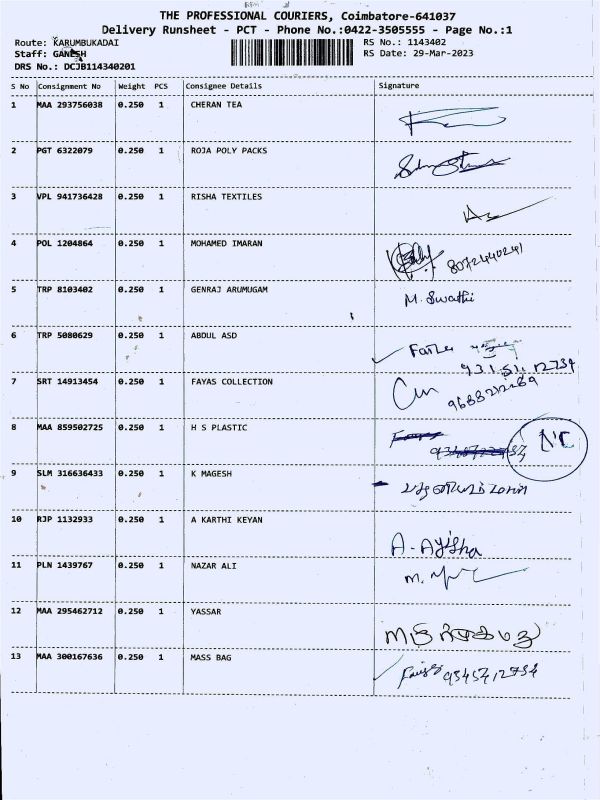 THE PROFESSIONAL COURIERS, Coimbatore-641037
Delivery Runsheet - PCT - Phone No.:0422-3505555 - Page No.:1
Route: KARUMBUKADAI RS No.: 1143402
Staff: GANESH RS Date: 29-Mar-2023
DRS No.: DCJB114340201
S No Consignment No Weight PCS Consignee Details Signature
1 MAA 293756038 0.250 1 CHERAN TEA
2 PGT 6322079 0.250 1 ROJA POLY PACKS
3 VPL 941736428 0.250 1 RISHA TEXTILES
4 POL 1204864 0.250 1 MOHAMED IMARAN 8072440241
5 TRP 8103402 0.250 1 GENRAJ ARUMUGAM M. Swathi
6 TRP 5080629 0.250 1 ABDUL ASD
7 SRT 14913454 0.250 1 FAYAS COLLECTION
8 MAA 859502725 0.250 1 H S PLASTIC
9 SLM 316636433 0.250 1 K MAGESH
10 RJP 1132933 0.250 1 A KARTHI KEYAN A. Ayisha
11 PLN 1439767 0.250 1 NAZAR ALI
12 MAA 295462712 0.250 1 YASSAR
13 MAA 300167636 0.250 1 MASS BAG 9345712734